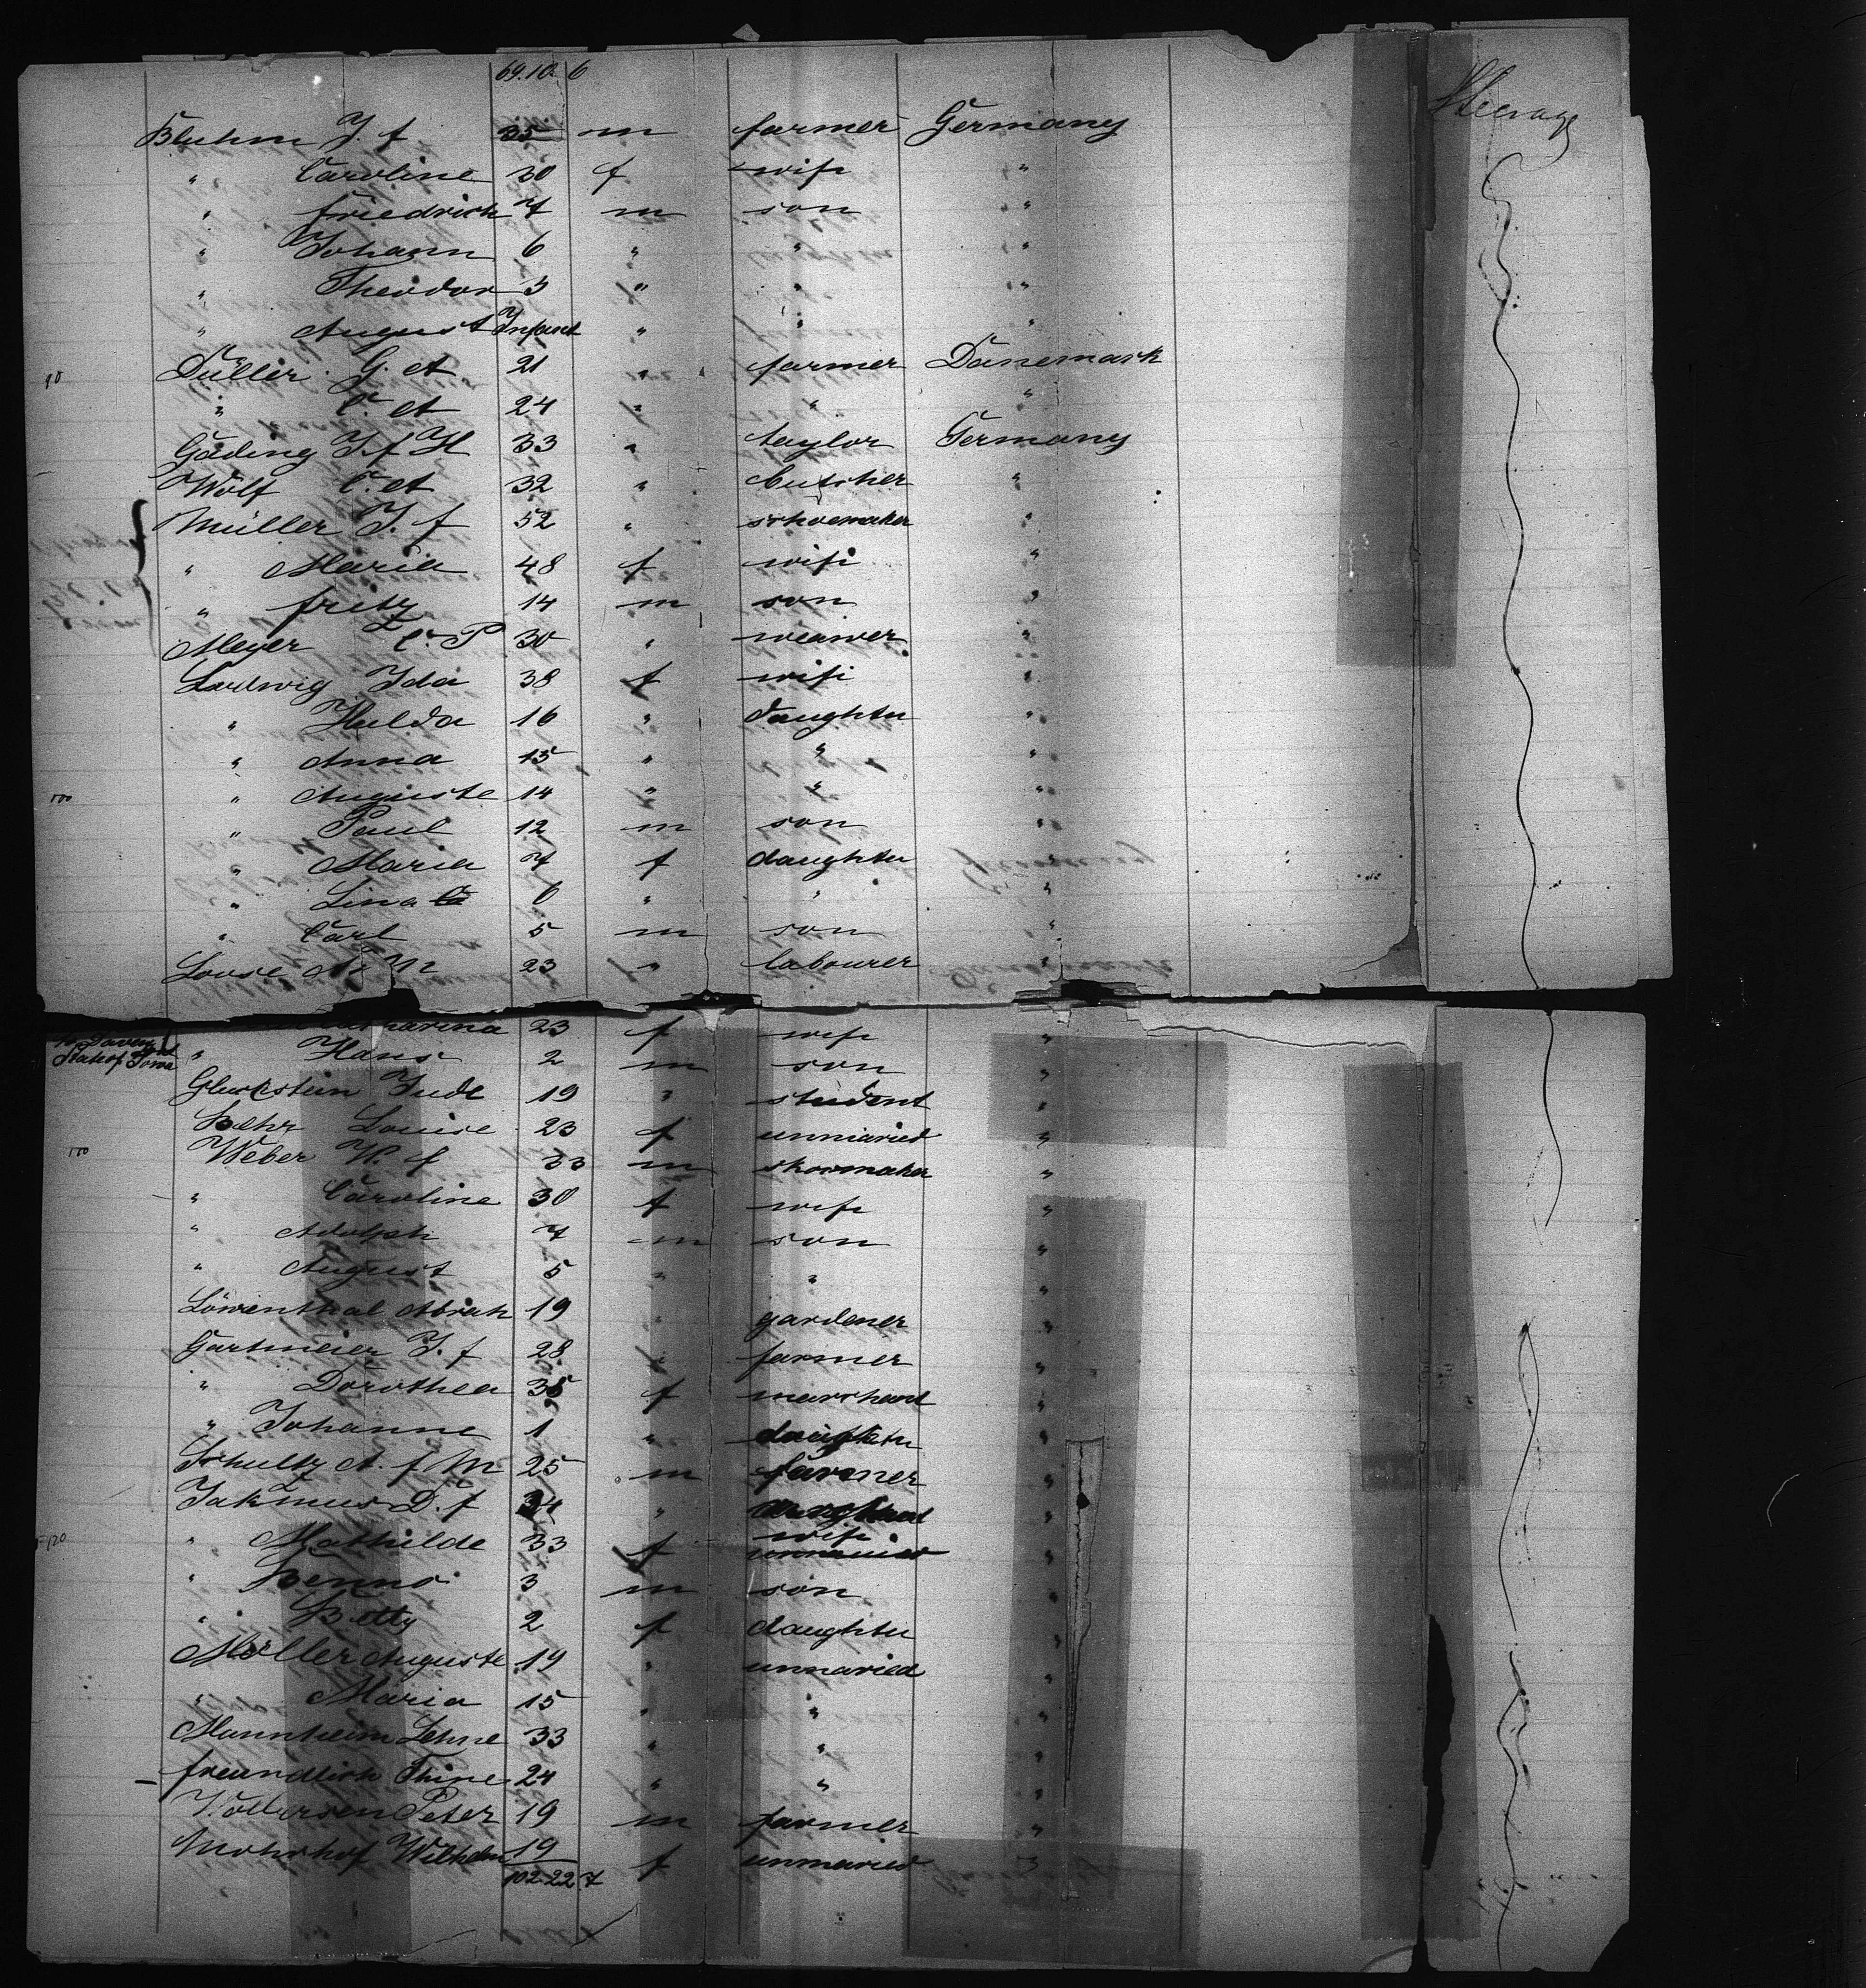 69. 10. 6
Steerage
Bluhm J. f 35 m farmer Germany
" Caroline 30 f wife "
" Friedrich 7 m son "
" Johann 6 " " "
" Theodor 3 " " "
" August Infant " " "
90 Düller G. A 21 " farmer Dänemark
" C. A 24 " " "
Gäding J. f H 33 " taylor Germany
Wolf C. A 32 " butcher "
Müller J. f 52 " schoemaker "
" Maria 48 f wife "
" Fritz 14 m son "
Meyer C. P 30 " weawer "
Ludwig Ida 38 f wife "
" Hulda 16 " daughter "
" Anna 15 " " "
100 " Auguste 14 " " "
" Paul 12 m son "
" Maria 7 f daughter "
" Lina 6 " " "
" Carl 5 m son "
Loose N. M 23 " labourer "
Catharina 23 f wife "
State of Iowa " Hans 2 m son "
Gluckstein Jude 19 " student "
Behr Louise 23 f unmaried "
Weber W. f 33 m shoemaker "
" Caroline 30 f wife "
" Adolph 7 m son "
" August 5 " " "
Löwenthal Abrah 19 " gardener "
Gartmeier J. f 28 " farmer "
" Dorothea 35 f marchand "
" Johanne 1 " daughter "
Schultz A. f M 25 m farmer "
Jakimus D. f 34 " "
120 " Mathilde 33 f wife unmaried "
" Benno 3 m son "
" Betty 2 f daughter "
Möller Auguste 19 " unmaried "
" Maria 15 " " "
Mannheim Lehne 33 " " "
Freundlich Thine 24 " " "
Peter 19 m farmer "
Mohrhof Wilhelm 19 f unmaried "
102. 22. 7